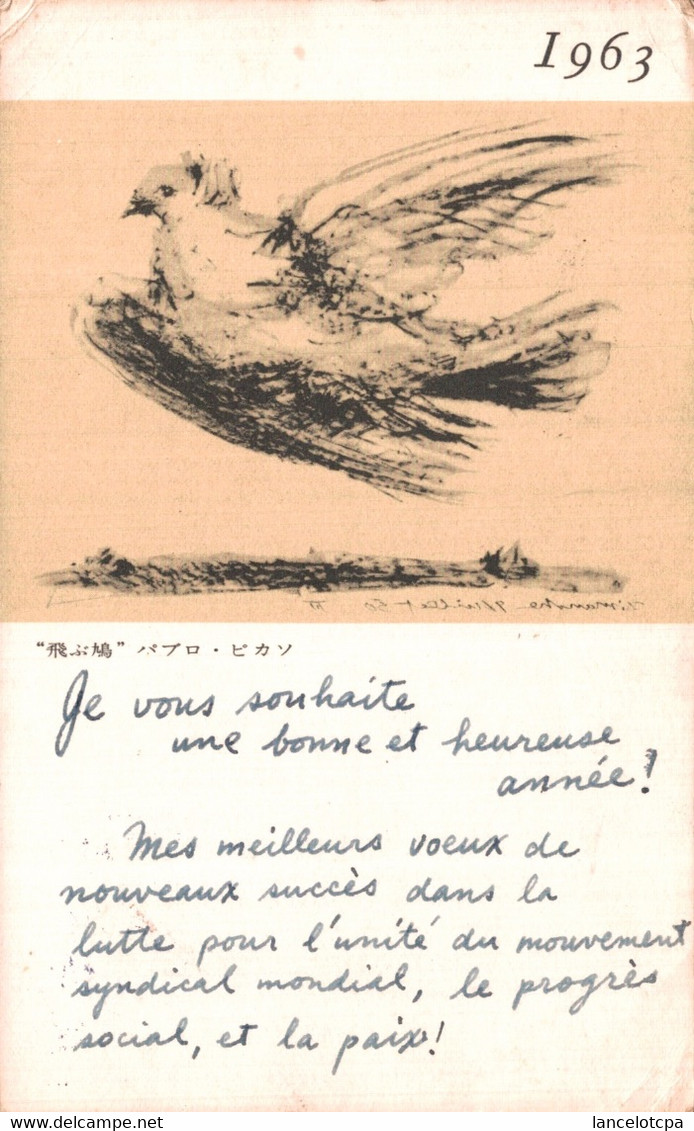 1963
"飛ぶ鳩" パブロ・ピカソ
Je vous souhaite
une bonne et heureuse
année!
Mes meilleurs voeux de
nouveaux succès dans la
lutte pour l'unité du mouvement
syndical mondial, le progrès
social, et la paix!
lancelotcpa